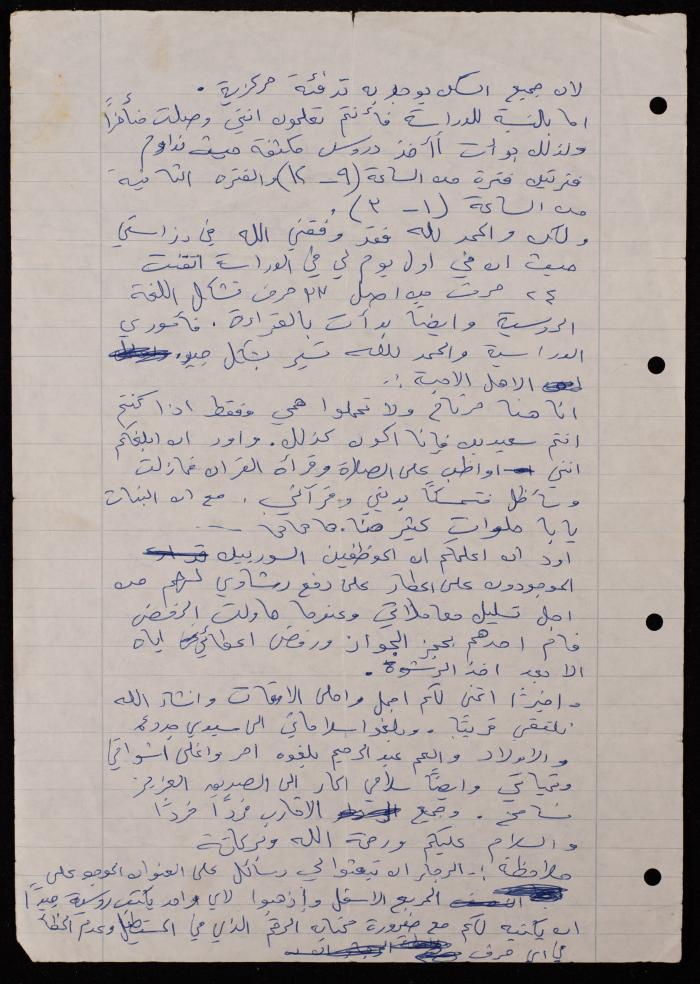 لان جميع السكن يوجد به تدفئة مركزية .
اما بالنسبة للدراسة فأنتم تعلمون انني وصلت متأخراً
ولذلك بدأت أأخذ دروس مكثفة حيث نداوم
فترتين فترة من الساعة (٩ - ١٢) والفتره الثانية
من الساعة (١ - ٣) .
ولكن والحمد لله فقد وفقني الله في دراستي
حيث ان في اول يوم لي في الدراسة اتقنت
٢٤ حرف من اصل ٣٣ حرف تشكل اللغة
الروسية وايضاً بدأت بالقراءة . فأموري
الدراسية والحمد لله تسير بشكل جيد .
الاهل الاحبة :.
انا هنا مرتاح ولا تحملوا همي وفقط اذا كنتم
انتم سعيدين فإنا اكون كذلك . واود ان ابلغكم
انني اواظب على الصلاة وقرأة القران فمازلت
وسأظل متمسكاً بديني وقرآني . مع ان البنات
يا با حلوات كثير هنا . ها ها ها
اود ان اعلمكم ان الموظفين السوريين
الموجودون على المطار على دفع رشاوي لهم من
اجل تسليك معاملاتي وعندما حاولت الرفض
قام احدهم بحجز الجواز ورفض اعطائي اياه
الا بعد اخذ الرشوة .
واخيرًا اتمنى لكم اجمل واحلى الاوقات وانشاء الله
نلتقي قريبًا . وبلغوا سلاماتي الى سيدي
والاولاد والعم عبد الرحيم بلغوه احر واغلى اشواقي
وتحياتي وايضاً سلامي الحار الى الصديق العزيز
سامح . وجميع الاقارب فردًا فردًا
والسلام عليكم ورحمة الله وبركاتة
ملاحظة :. الرجاء ان تبعثوا لي رسائل على العنوان الموجود على
المربع الاسفل وإذهبوا لاي واحد يكتب روسية جيدًا
ان يكتبه لكم مع ضرورة كتابة الرقم الذي في المستطيل وعدم الخطأ
في اي حرف